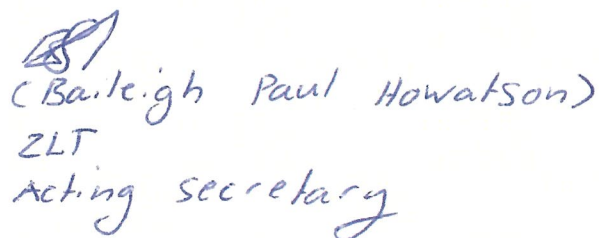 (Baileigh Paul Howatson)
2LT
Acting secretary